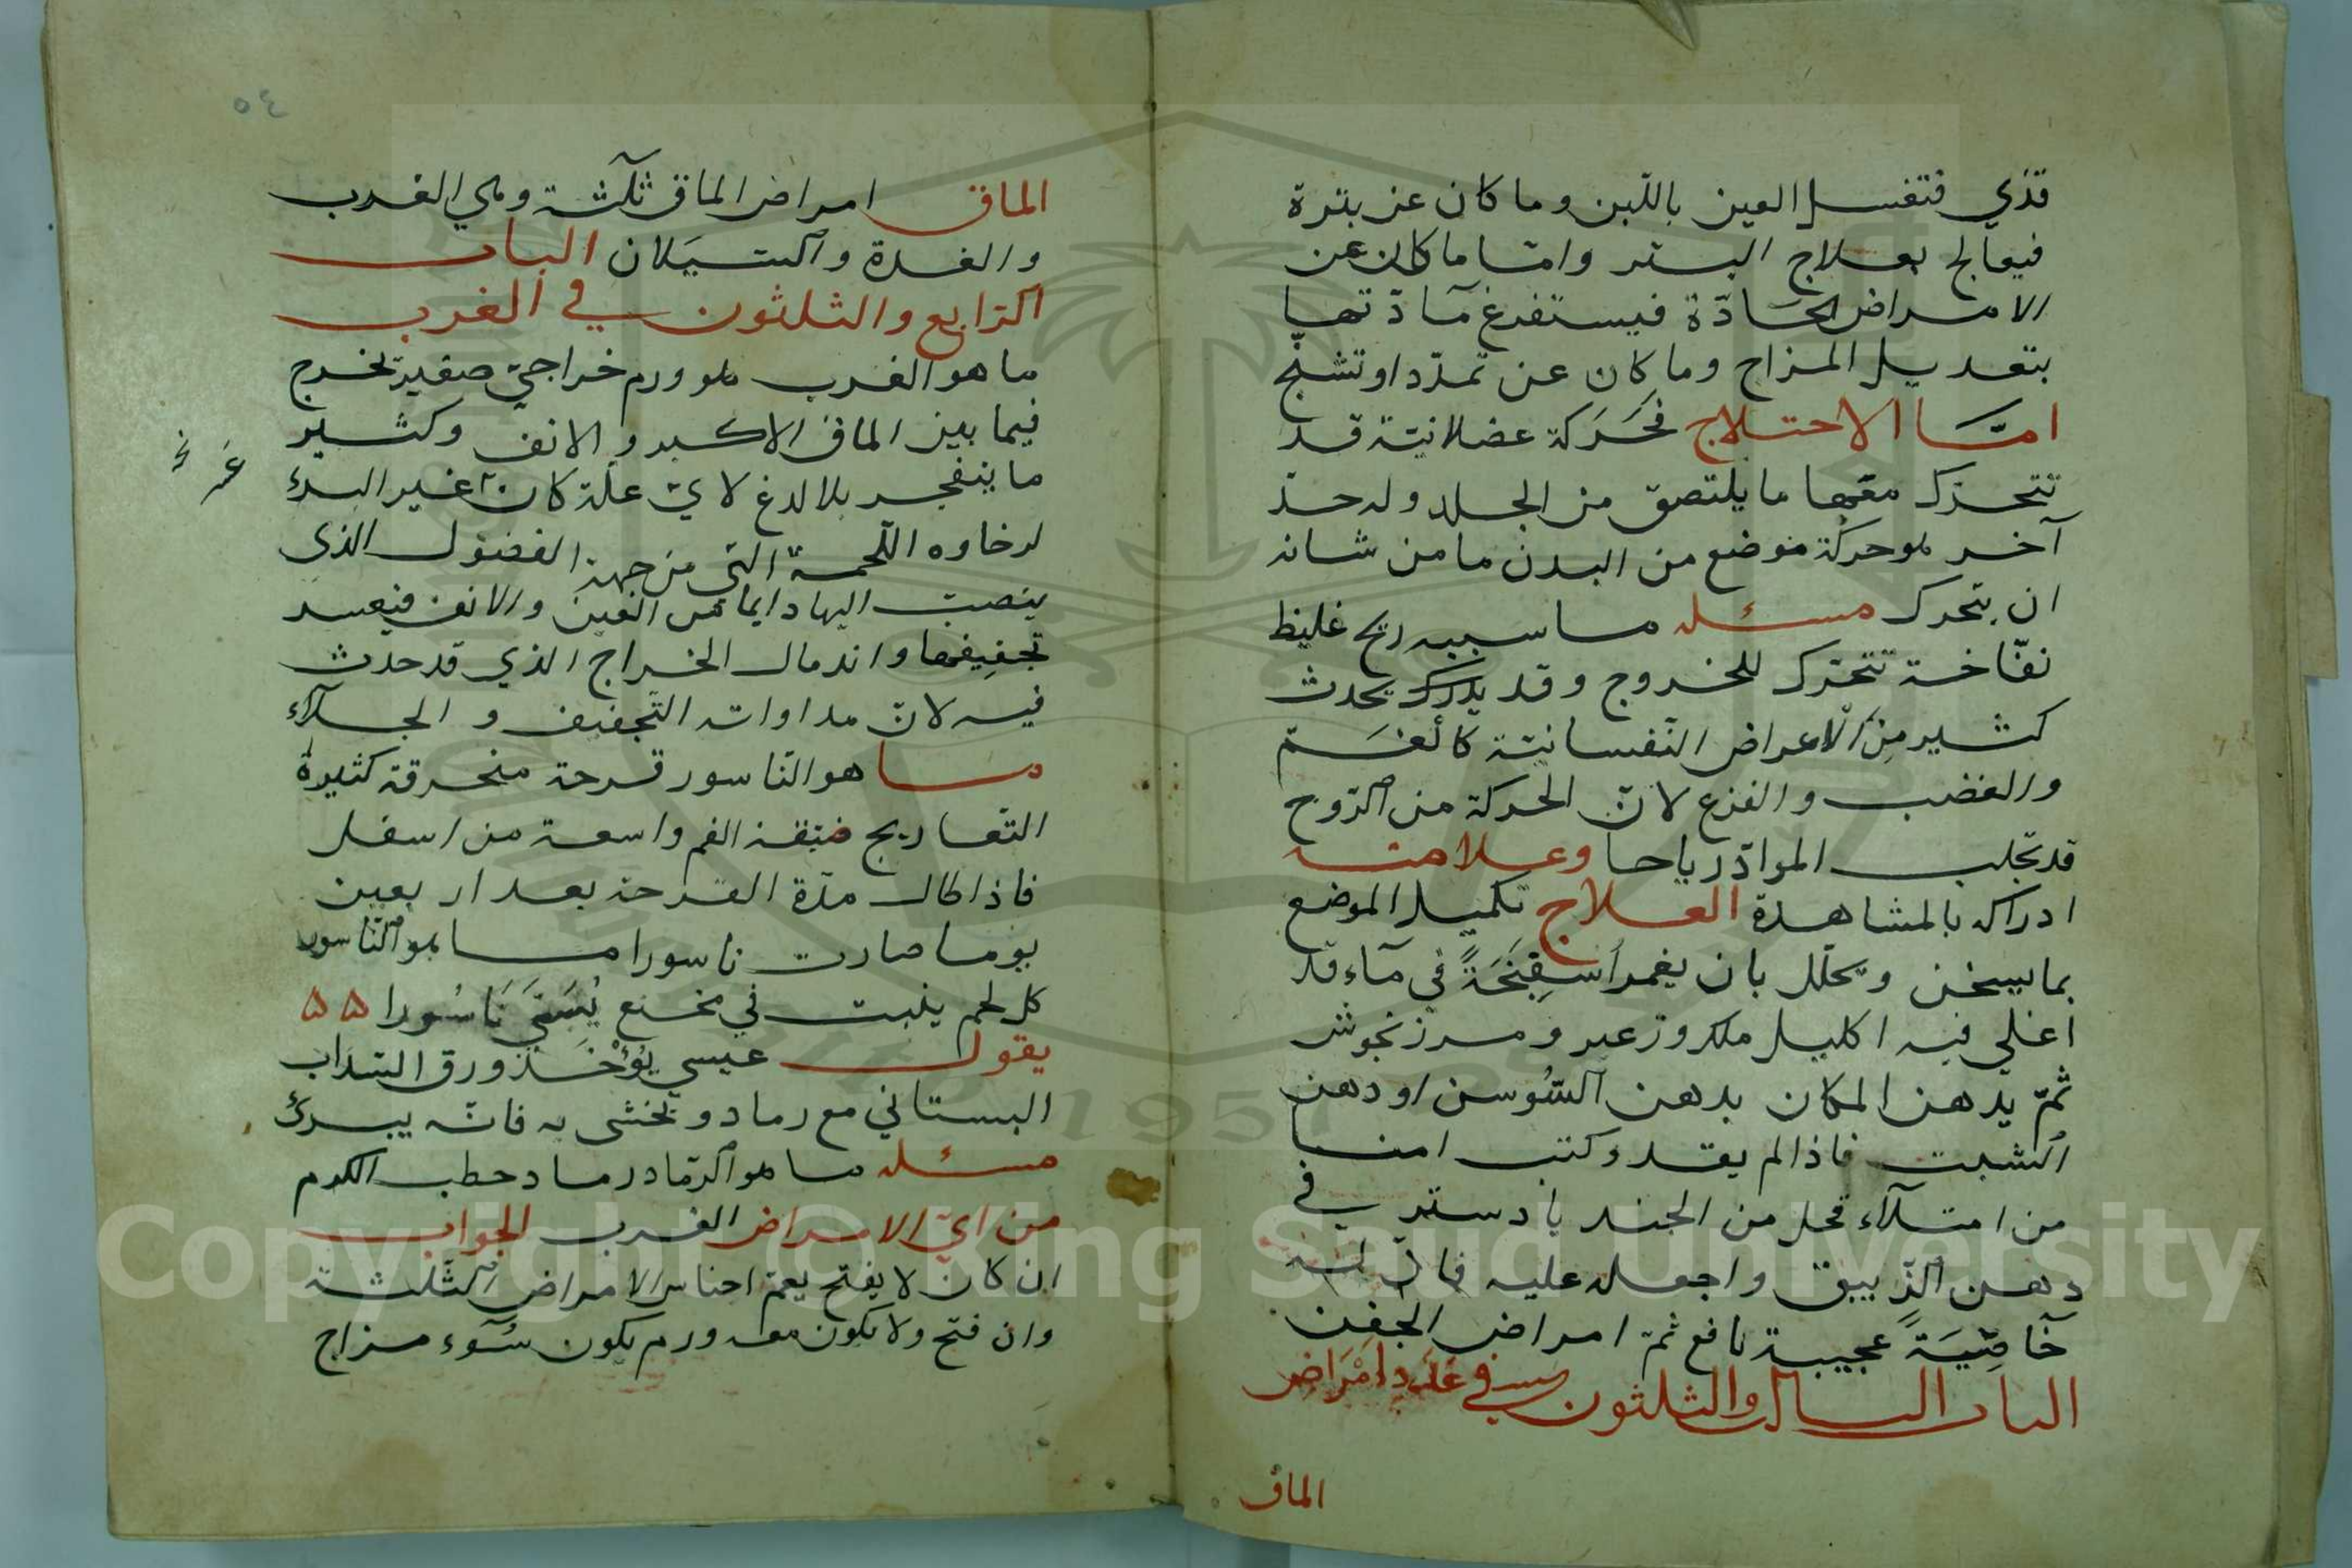 قذي فتغسل العين باللّبن وما كان عن بثرة
فيعالج بعلاج البثر وامّا ما كان عن
الامراض الحادّة فيستفرغ مآدّتها
بتعديل المزاج وما كان عن تمدّد او تشنّج
امّا الاختلاج فحَرَكة عضلانيّة قد
تتحرّك معها ما يلتصق من الجلد وله حدّ
آخر هو حركة موضع من البدن ما من شانه
ان يتحرك مسئله ما سببه ريح غليظ
نفّاخة تتحرّك للخروج وقد يحدث
كثير مِن الاعراض النّفسانيّة كالغَمّ
والغضب والفزع لانّ الحركة من الرّوح
قد تجلب الموادّ رياحا وعلامته
ادراكه بالمشاهدة العلاج تكميد الموضع
بما يسخن ويحلّل بان يغمر اُسفِنجَةً في مآء قد
اغلي فيه اكليل ملك وزعبر ومرزنجوش
ثمّ يدهن المكان بدهن السّوسن او دهن
الشبت فاذا لم يقد وكنت امنا
من امتلآء فحل من الجند بادستر في
دهن الزّيبق واجعله عليه فانّ له
خآصِّيَةً عجيبة نافع ثمّ امراض الجفن
الباب الثالث والثلثون في عدد امراض
الماق
٥٤
الماق امراض الماق ثلثة وهي الغرب
والغدة والسّيَلان الباب
الرّابع والثلثون في الغرب
ما هو الغرب هو ورم خراجيّ صغير يخرج
فيما بين الماق الاكبر والانف وكثير
ما ينفجر بلا لدغ لايّ علّة كان عسير البرء
لرخاوه اللّحمة الّتي من جهة الفضول الذي
ينصبّ اليها دايما من العين والانف فيعسر
تجفيفها واندمال الخراج الذي قد حدث
فيه لانّ مداواته التّجفيف والجلآء
ما هو النّاسور قرحة منحرقة كثيرة
التّعاريج ضيّقة الفم واسعة من اسفل
فاذا طال مدّة القرحة بعد اربعين
يوما صارت ناسورا ما هو النّاسور
كل لحم ينبت في مخنع يُسَمَّي نَاسُورا ۵۵
يقول عيسي يُوْخذ ورق السّداب
البستاني مع رماد ويحشى به فانّه يبرئ
مسئله ما هو الرّماد رماد حطب الكرم
من ايّ الامراض الغرب الجواب
ان كان لا يفتح يعمّ اجناس الامراض الثّلثة
وان فتح ولا يكون معه ورم يكون سُوء مزاج
Copyright © King Saud University
1957